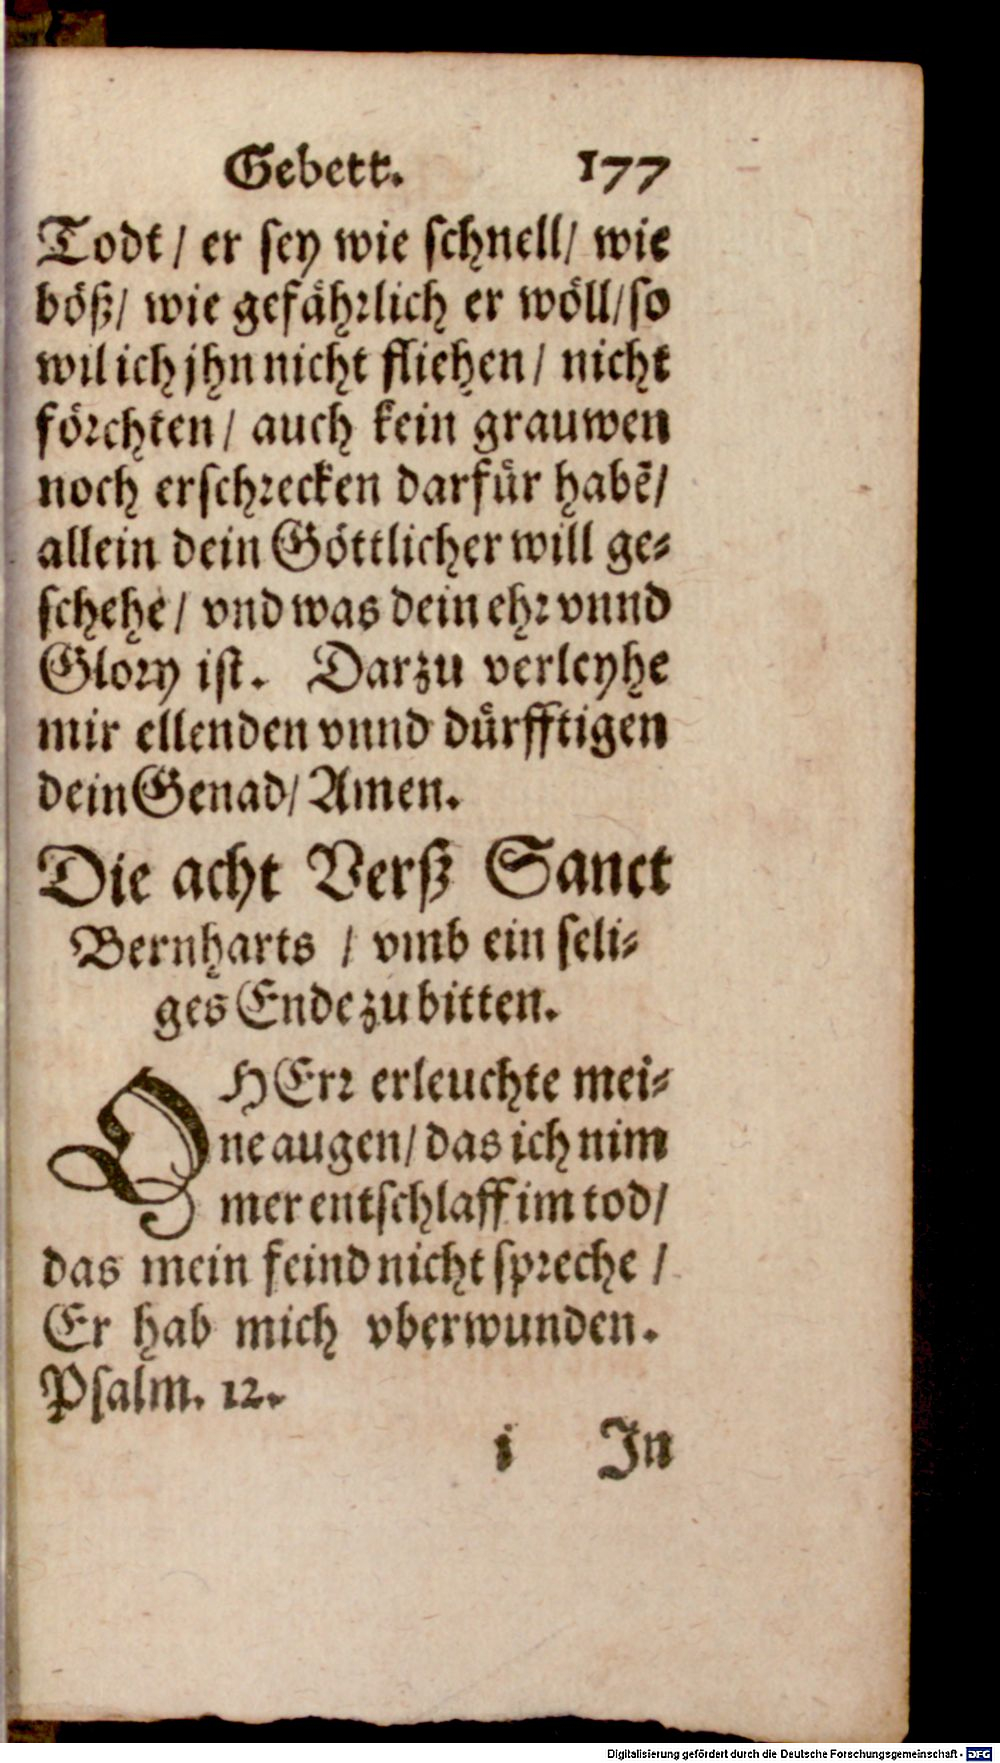 Gebett. 177
Todt / er sey wie schnell / wie
böß / wie gefährlich er wöll / so
wil ich jhn nicht fliehen / nicht
förchten / auch kein grauwen
noch erschrecken darfür habẽ /
allein dein Göttlicher will ge-
schehe / vnd was dein ehr vnnd
Glory ist. Darzu verleyhe
mir ellenden vnnd dürfftigen
dein Genad / Amen.
Die acht Verß Sanct
Bernharts / vmb ein seli-
ges Ende zu bitten.
O HErr erleuchte mei-
ne augen / das ich nim
mer entschlaff im tod /
das mein feind nicht spreche /
Er hab mich vberwunden.
Psalm. 12.
i In
Digitalisierung gefördert durch die Deutsche Forschungsgemeinschaft - DFG